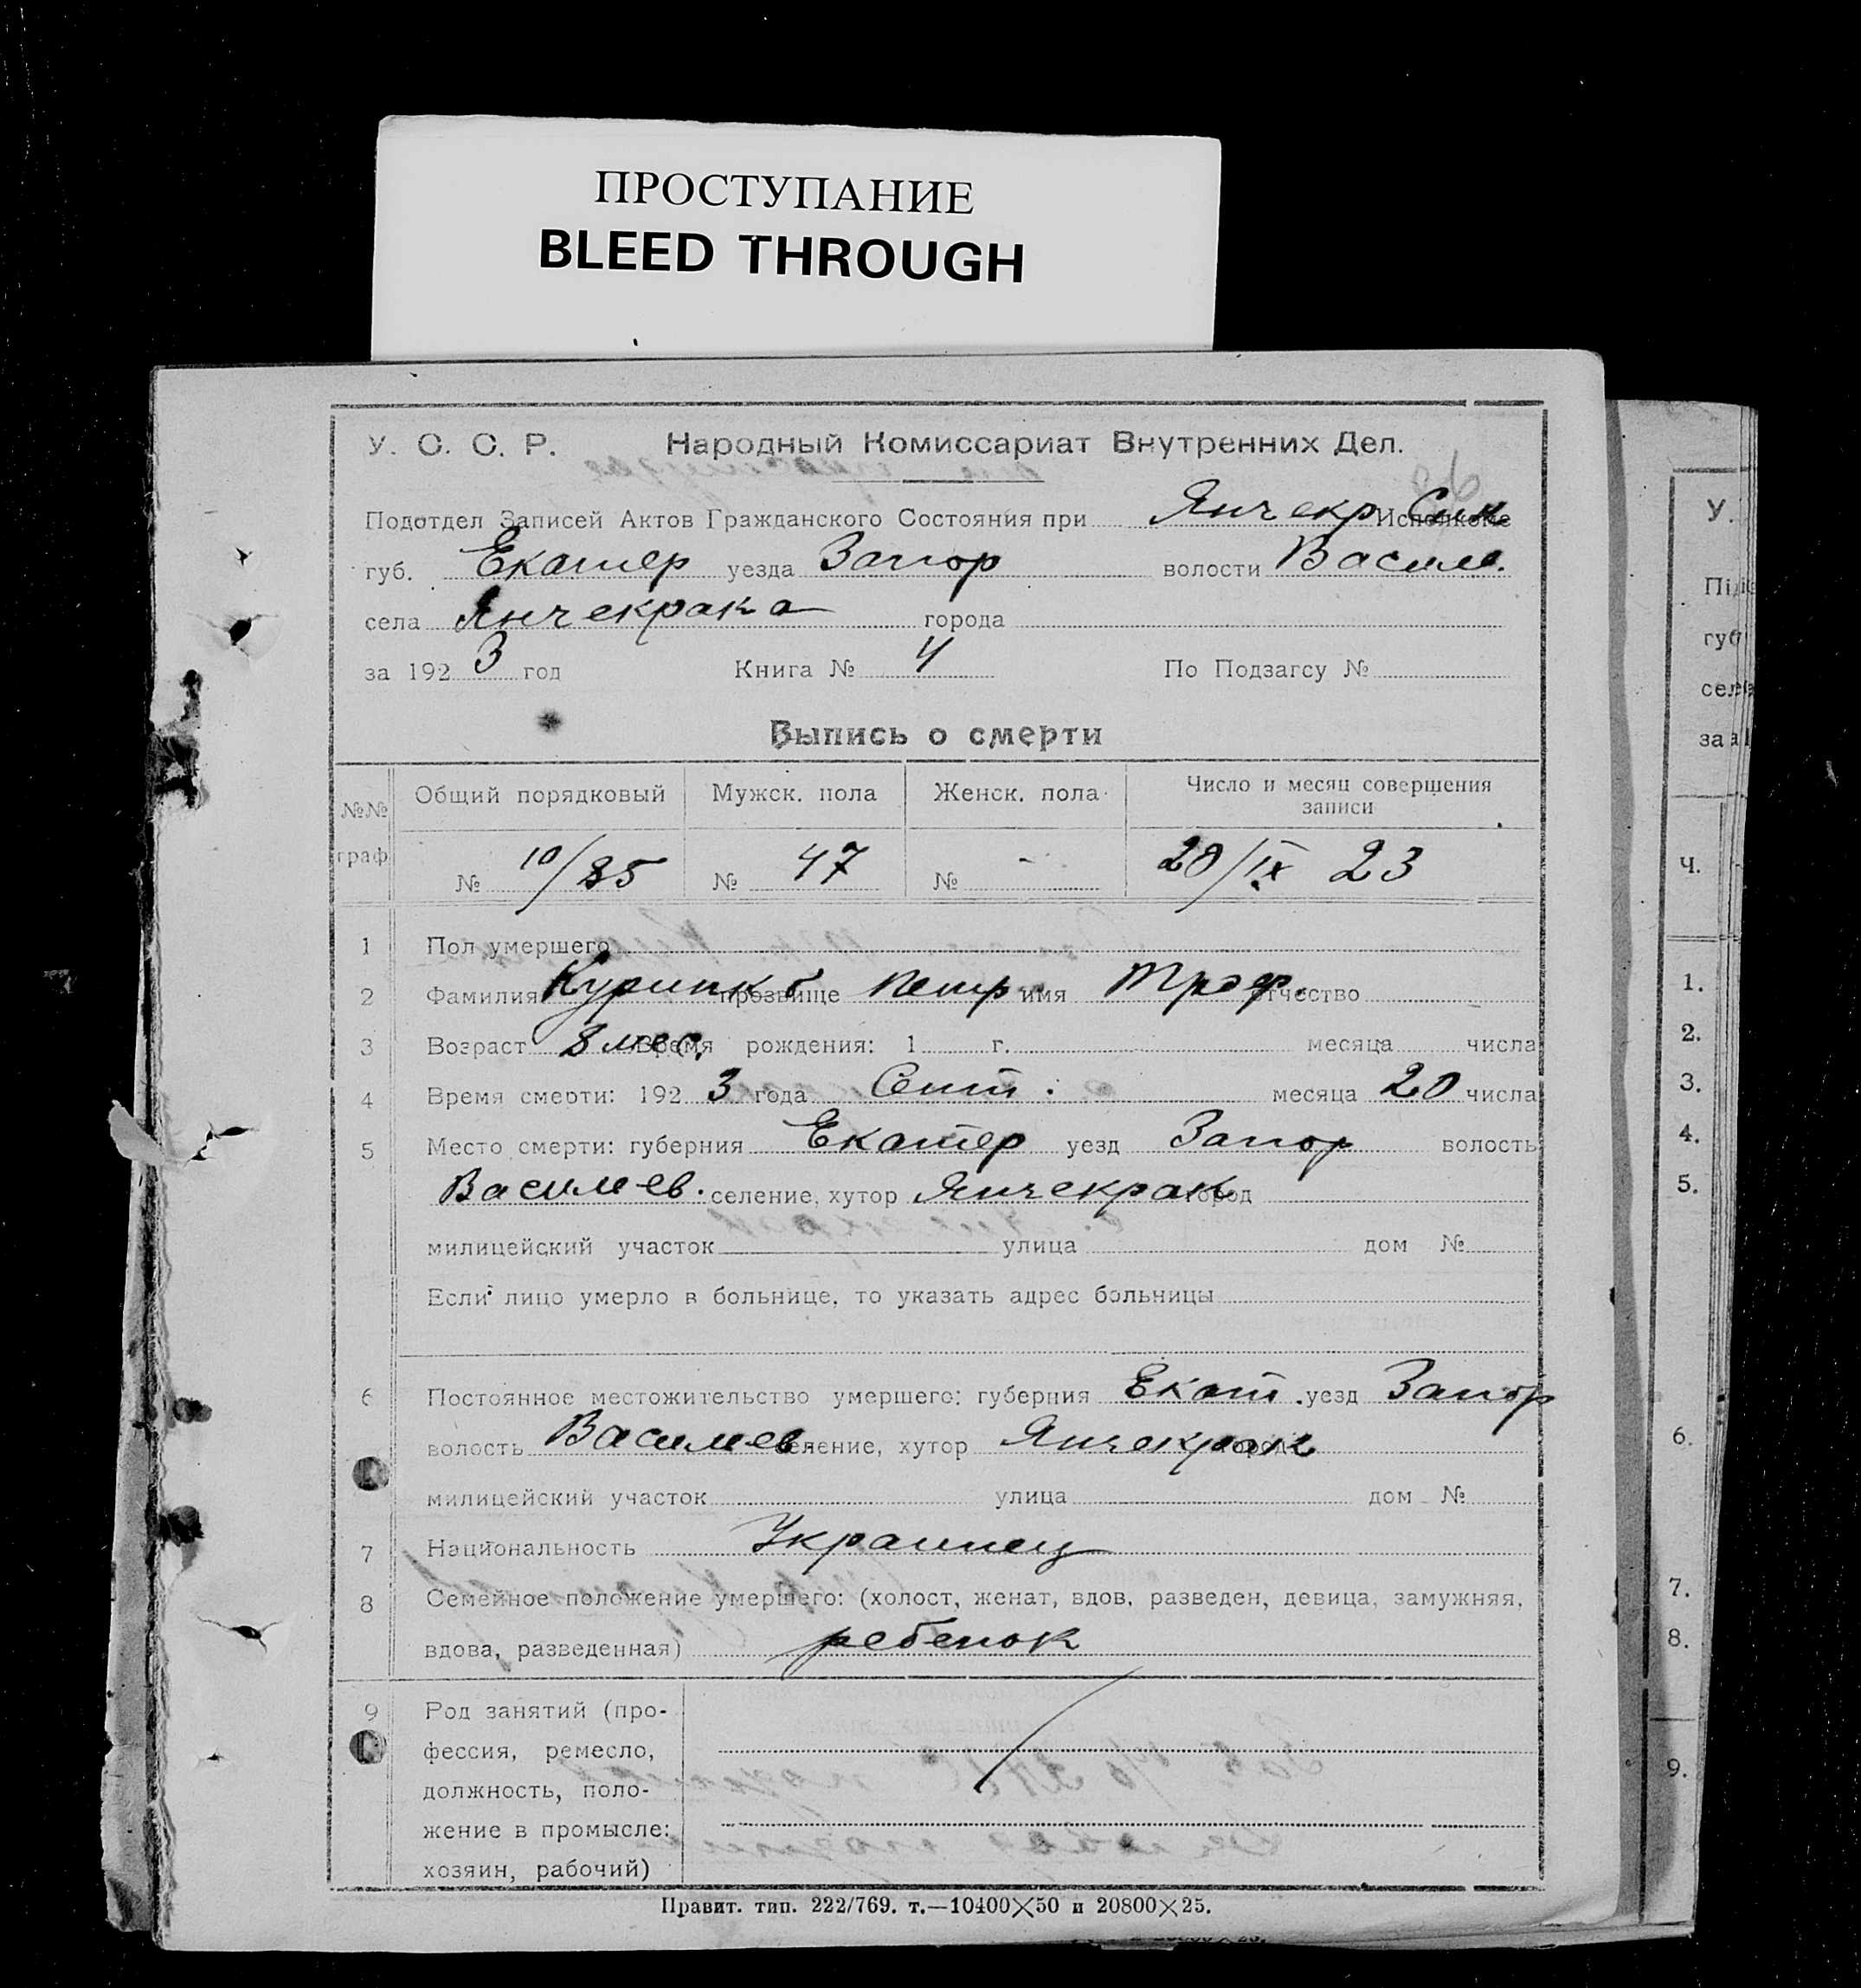 ПРОСТУПАНИЕ
BLEED THROUGH
У. С. С. Р. Народный Комиссариат Внутренних Дел.
Подотдел Записей Актов Гражданского Состояния при Янчекр Исполкоме
губ. Екатер уезда Запор волости Васил.
села Янчекрака города
за 1923 год Книга № 4 По Подзагсу №
Выпись о смерти
№№ граф Общий порядковый Мужск. пола Женск. пола Число и месяц совершения записи
№ 10/85 № 47 № - 20/IX 23
1 Пол умершего
2 Фамилия Курипко прозвище Петр имя Троф. отчество
3 Возраст 8 мес. Время рождения: 1 г. месяца числа
4 Время смерти: 1923 года Сент. месяца 20 числа
5 Место смерти: губерния Екатер уезд Запор волость
Василев. селение, хутор Янчекрак город
милицейский участок улица дом №
Если лицо умерло в больнице, то указать адрес больницы
6 Постоянное местожительство умершего: губерния Екат. уезд Запор
волость Василев селение, хутор Янчекрак город
милицейский участок улица дом №
7 Национальность Украинец
8 Семейное положение умершего: (холост, женат, вдов, разведен, девица, замужняя,
вдова, разведенная) ребенок
9 Род занятий (про-
фессия, ремесло,
должность, поло-
жение в промысле:
хозяин, рабочий)
Правит. тип. 222/769. т.—10400×50 и 20800×25.
У.
губ
за
Ч.
1.
2.
3.
4.
5.
6.
7.
8.
9.